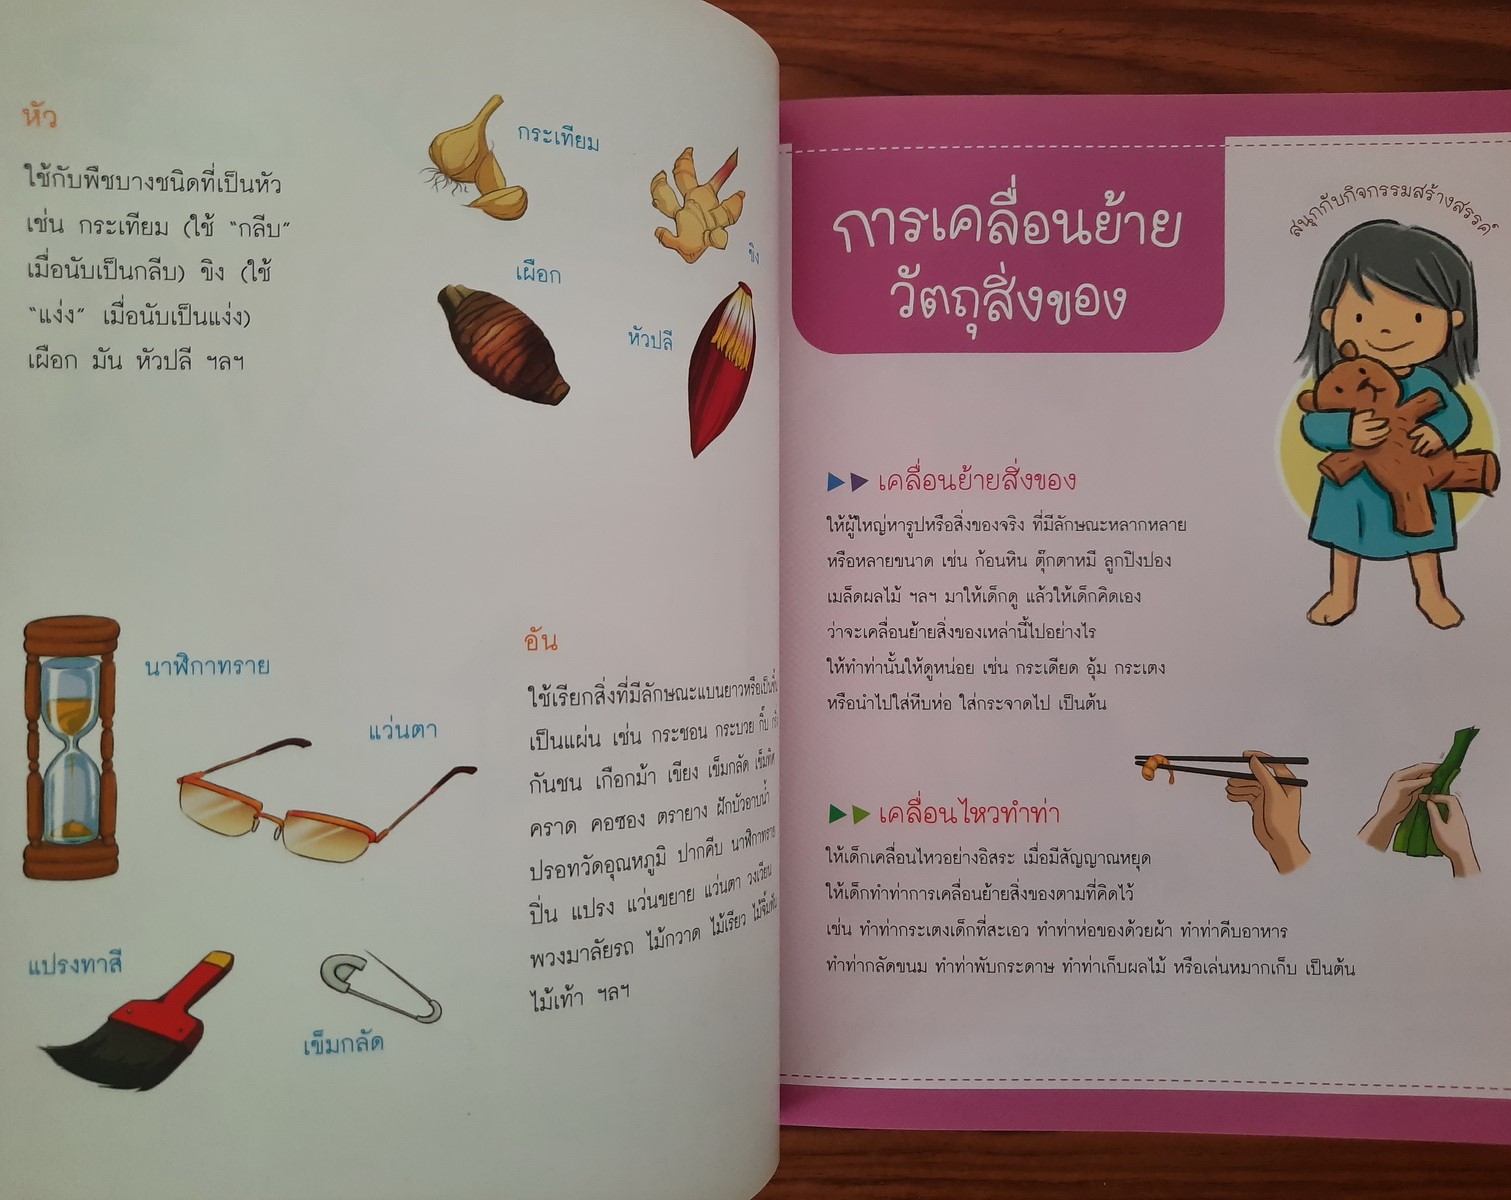 หัว
ใช้กับพืชบางชนิดที่เป็นหัว
เช่น กระเทียม (ใช้ “กลีบ”
เมื่อนับเป็นกลีบ) ขิง (ใช้
“แง่ง” เมื่อนับเป็นแง่ง)
เผือก มัน หัวปลี ฯลฯ
กระเทียม
ขิง
เผือก
หัวปลี
นาฬิกาทราย
แว่นตา
แปรงทาสี
เข็มกลัด
อัน
ใช้เรียกสิ่งที่มีลักษณะแบนยาวหรือเป็นชิ้น
เป็นแผ่น เช่น กระชอน กระบวย กิ๊บ
กันชน เกือกม้า เขียง เข็มกลัด เข็มทิศ
คราด คอซอง ตรายาง ฝักบัวอาบน้ำ
ปรอทวัดอุณหภูมิ ปากคีบ นาฬิกาทราย
ปิ่น แปรง แว่นขยาย แว่นตา วงเวียน
พวงมาลัยรถ ไม้กวาด ไม้เรียว ไม้จิ้มฟัน
ไม้เท้า ฯลฯ
การเคลื่อนย้าย
วัตถุสิ่งของ
สนุกกับกิจกรรมสร้างสรรค์
เคลื่อนย้ายสิ่งของ
ให้ผู้ใหญ่หารูปหรือสิ่งของจริง ที่มีลักษณะหลากหลาย
หรือหลายขนาด เช่น ก้อนหิน ตุ๊กตาหมี ลูกปิงปอง
เมล็ดผลไม้ ฯลฯ มาให้เด็กดู แล้วให้เด็กคิดเอง
ว่าจะเคลื่อนย้ายสิ่งของเหล่านี้ไปอย่างไร
ให้ทำท่านั้นให้ดูหน่อย เช่น กระเดียด อุ้ม กระเตง
หรือนำไปใส่หีบห่อ ใส่กระจาดไป เป็นต้น
เคลื่อนไหวทำท่า
ให้เด็กเคลื่อนไหวอย่างอิสระ เมื่อมีสัญญาณหยุด
ให้เด็กทำท่าการเคลื่อนย้ายสิ่งของตามที่คิดไว้
เช่น ทำท่ากระเตงเด็กที่สะเอว ทำท่าห่อของด้วยผ้า ทำท่าคีบอาหาร
ทำท่ากลัดขนม ทำท่าพับกระดาษ ทำท่าเก็บผลไม้ หรือเล่นหมากเก็บ เป็นต้น